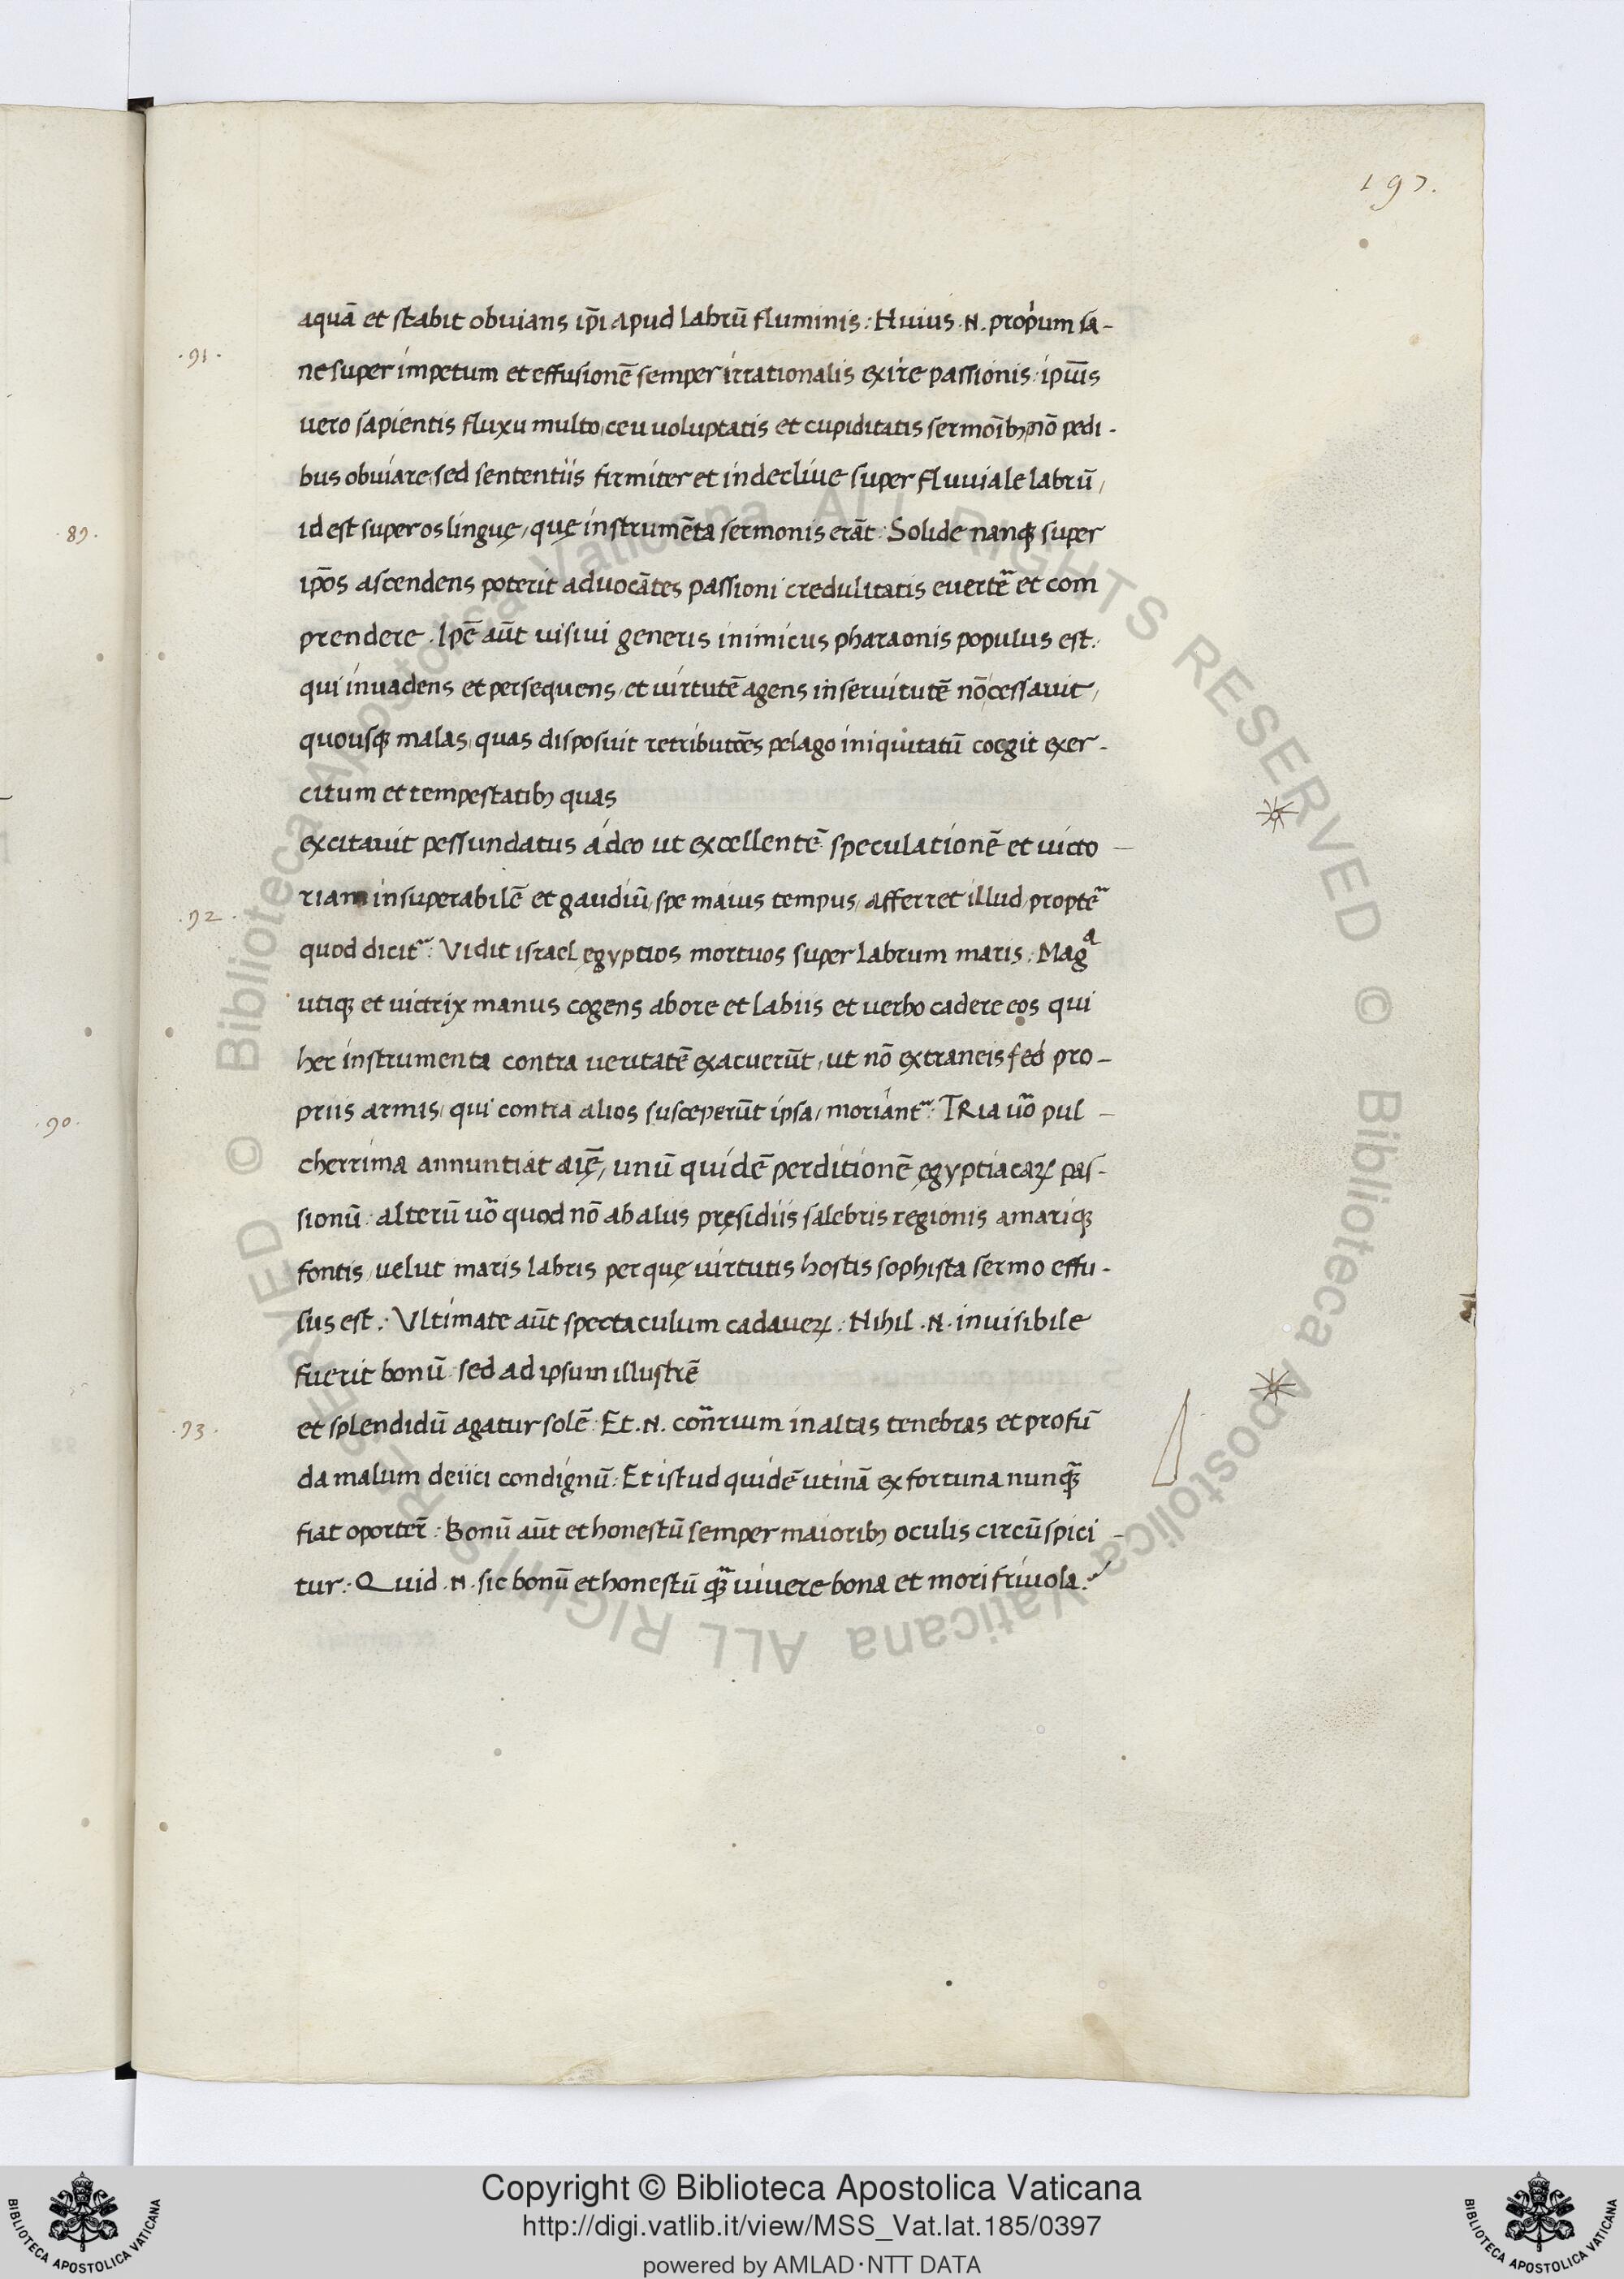 197.
aquā et stabit obuians ip̄i apud labrū fluminis: Huius .N. proprium sa-
.91.
ne super impetum et effusionē semper irrationalis exire passionis: ipiu̅s
uero sapientis fluxu multo, ceu uoluptatis et cupiditatis sermoībꝫ nō pedi-
bus obuiare, sed sententiis firmiter et indecliue super fluuiale labrū,
.89.
id est super os linguę, quę instrumēta sermonis erāt: Solide nanqꝫ super
ip̄os ascendens poterit aduocātes passioni credulitatis euerte᷑ et com
prendere. Ip̄e aūt uisiui generis inimicus pharaonis populus est:
qui inuadens et persequens, et uirtutē agens in seruitutē nō cessauit,
quousqꝫ malas, quas disposuit retributōes pelago iniquitatū coegit exer-
citum et tempestatibꝫ quas
excitauit pessundatus ádeo ut excellentē speculationē et uicto-
.92.
riam insuperabilē et gaudiū, spe maius tempus, afferret illud, propte᷑
quod dicit᷑: Vidit israel ęgyptios mortuos super labrum maris: Magᵃ
utiqꝫ et uictrix manus cogens ab ore et labiis et uerbo cadere eos qui
hec instrumenta contra ueritatē exacuerūt, ut nō extraneis sed pro-
priis armis, qui contra alios susceperūt ipsa, moriant᷑: TRia uō pul-
.90.
cherrima annuntiat aię̄, unū quidē perditionē ęgyptiacaꝝ pas-
sionū: alterū uō quod nō ab aliis pręsidiis salebris regionis amariqꝫ
fontis, uelut maris labris per quę uirtutis hostis sophista sermo effu-
sus est: Vltimate aūt spectaculum cadaueꝝ: Nihil .N. inuisibile
fuerit bonū: sed ad ipsum illustrē
.93.
et splendidū agatur solē: Et .N. con̄rium in altas tenebras et profū
da malum deiici condignū: Et istud quidē utinā ex fortuna nunqꝫ̄
fiat oportet̄: Bonū aūt et honestū semper maioribꝫ oculis circūspici-
tur: Quid .N. sic bonū et honestū qꝫ̄ uiuere bona et mori friuola:
Copyright © Biblioteca Apostolica Vaticana
http://digi.vatlib.it/view/MSS_Vat.lat.185/0397
powered by AMLAD · NTT DATA
BIBLIOTECA APOSTOLICA VATICANA
BIBLIOTECA APOSTOLICA VATICANA
© Biblioteca Apostolica Vaticana ALL RIGHTS RESERVED
© Biblioteca Apostolica Vaticana ALL RIGHTS RESERVED